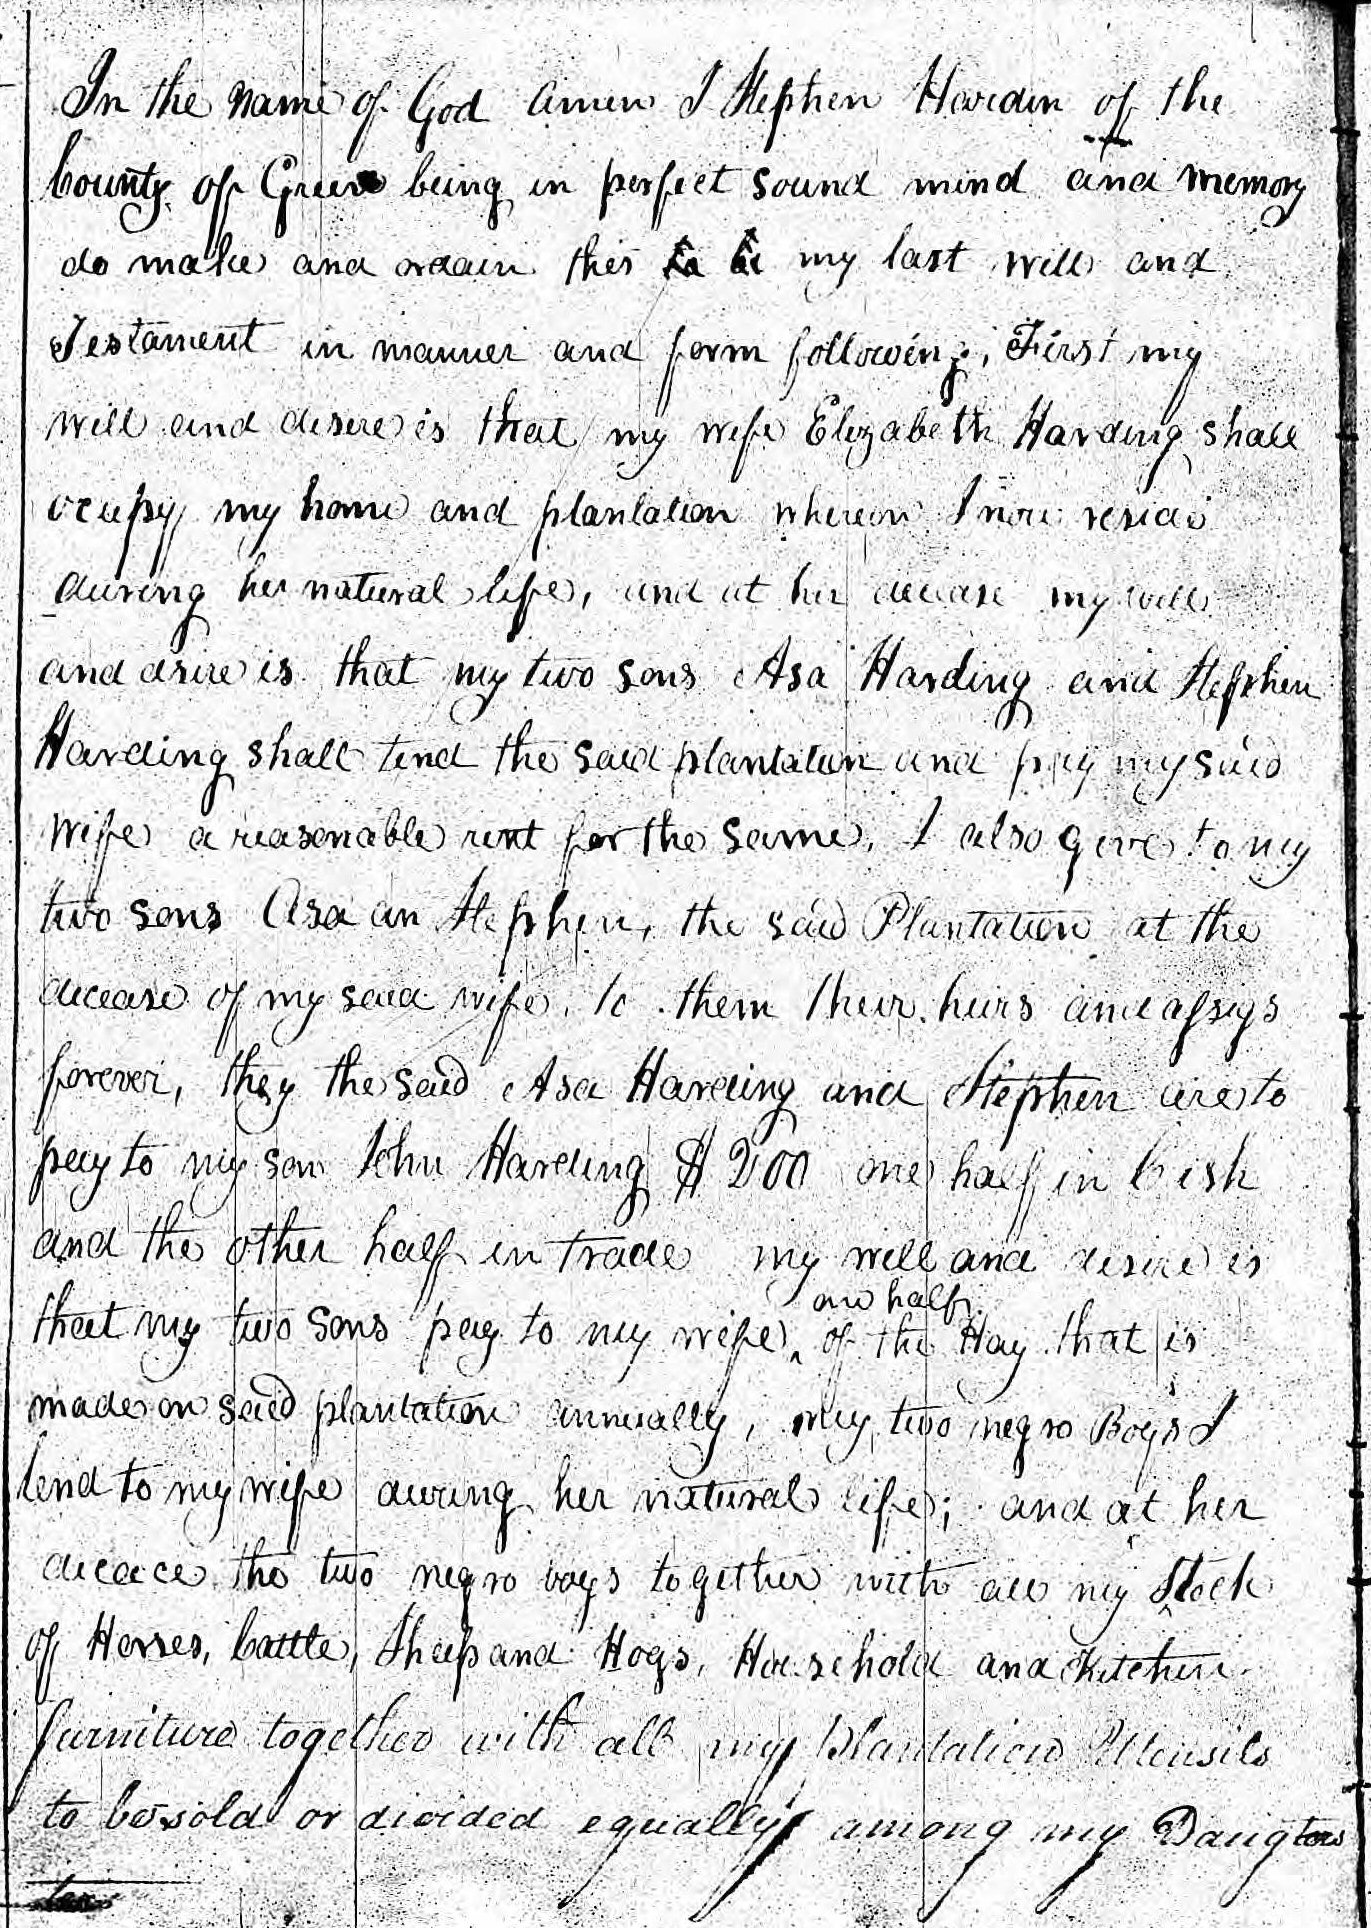 In the name of God amen I Stephen Hardin of the
County of Green being in perfect sound mind and memory
do make and ordain this to be my last will and
Testament in manner and form following; First my
will and desire is that my wife Elizabeth Harding shall
ocupy my home and plantation whereon I now reside
during her natural life, and at her decease my will
and desire is that my two sons Asa Harding and Stephen
Harding shall tend the said plantation and pay my said
wife a reasonable rent for the same. I also give to my
two sons Asa an Stephen, the said Plantation at the
decease of my said wife, to them their heirs and assigs
forever, they the said Asa Harding and Stephen are to
pay to my son John Harding $200 one half in Cash
and the other half in trade my will and desire is
that my two sons pay to my wife ^ one half of the Hay that is
made on said plantation annually, my two negro Boys I
lend to my wife during her natural life; and at her
decece the two negro boys together with all my Stock
of Horses, Cattle, Sheep and Hogs, Household and Kitchen
furniture together with all my plantation Utensils
to be sold or divided equally among my Daugters